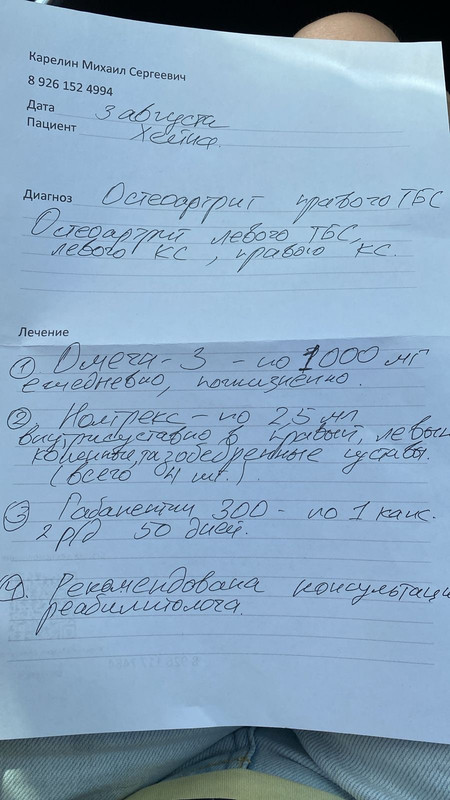 Карелин Михаил Сергеевич
8 926 152 4994
Дата 3 августа
Пациент
Диагноз Остеоартрит правого ТБС
Остеоартрит левого ТБС,
левого КС, правого КС.
Лечение
① Омега-3 - по 1000 мг
ежедневно, пожизненно.
② - по 2,5 мл
внутрисуставно в правый, левый
коленные, тазобедренные суставы.
(всего 4 шт.).
③ Габапентин 300 - по 1 капс.
2 р/д 50 дней.
Рекомендована консультаци
реабилитолога.